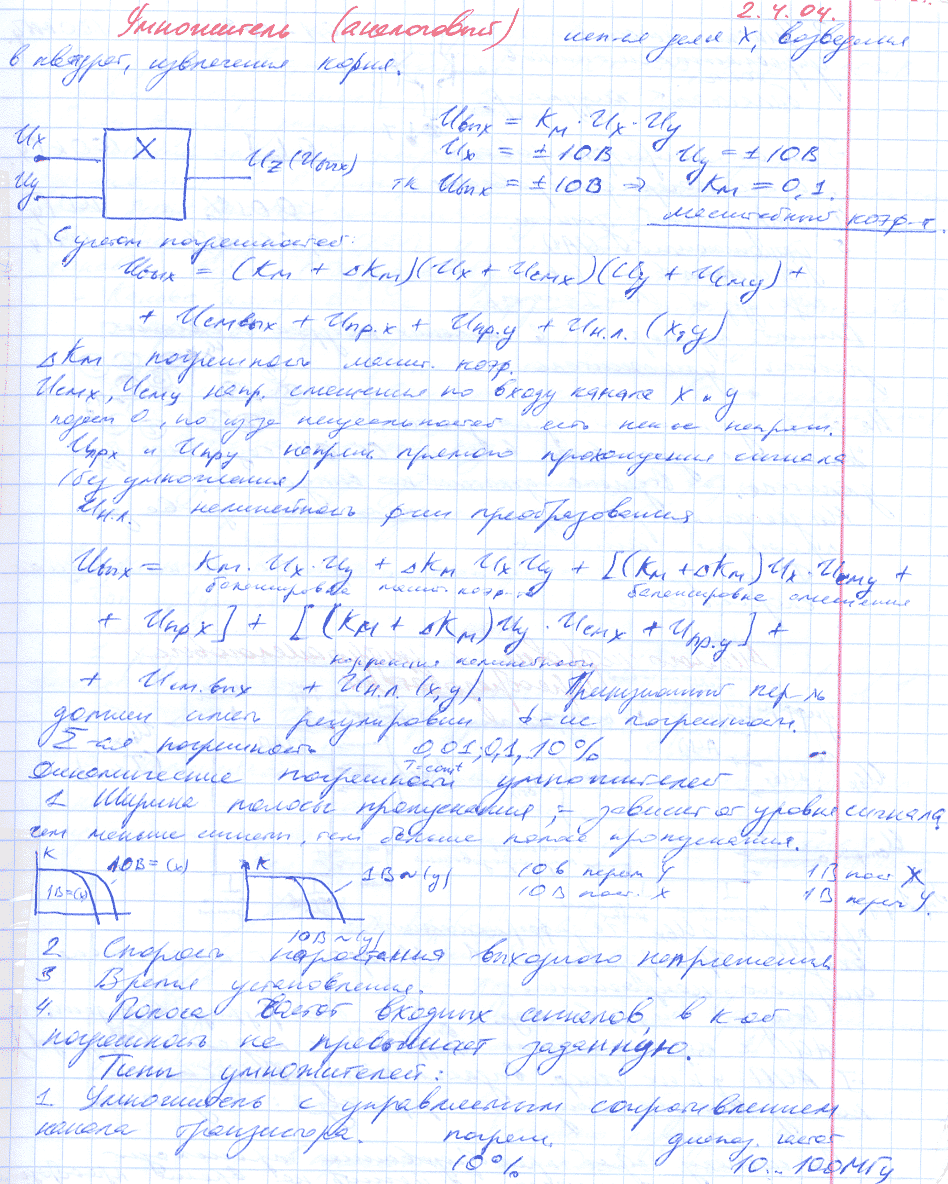 2.4.04.
Умножитель (аналоговый) использ для X, возведения
в квадрат, извлечения корня.
Uвых = Kм · Ux · Uy
Ux X Uz (Uвых) Ux = ±10В Uy = ±10В
Uy тк Uвых = ±10В ⇒ Kм = 0,1.
масштабный коэф-т.
С учетом погрешностей:
Uвых = (Kм + ΔKм)(Ux + Uсмx)(Uy + Uсмy) +
+ Uсмвых + Uпр.x + Uпр.y + Uн.л. (x,y)
ΔKм погрешность масшт. коэф.
Uсмx, Uсмy напр. смещения по входу канала X и y
подаем 0, но из за неидеальностей есть некое напряж.
Uпрx и Uпрy напряж прямого прохождения сигнала
(без умножения)
Uн.л. нелинейность фии преобразования
Uвых = Kм · Ux · Uy + ΔKм Ux Uy + [(Kм + ΔKм) Ux · Uсмy +
балансировка масшт. коэф-та балансировка смещения
+ Uпрx] + [(Kм + ΔKм) Uy · Uсмx + Uпр.y] +
коррекция нелинейности
+ Uсм.вых + Uн.л. (x,y). Прецизионный пер-ль
должен иметь регулировки погрешности.
Σ-ая погрешность 0,01; 0,1, 10%
T=const
Динамические погрешности умножителей
1 Ширина полосы пропускания ; - зависит от уровня сигнала
чем меньше сигнал, тем больше полоса пропускания.
K 10В=(x) K 1В~(y) 10в перем Y 1В пост X
1В=(x) 10В пост. X 1В перем Y.
10В~(y)
2 Скорость нарастания выходного напряжения
3 Время установления.
4. Полоса частот входных сигналов, в к-ой
погрешность не превышает заданную.
Типы умножителей:
1 Умножитель с управляемым сопротивлением
канала транзистора. погреш. диапаз. частот
10% 10...100МГц